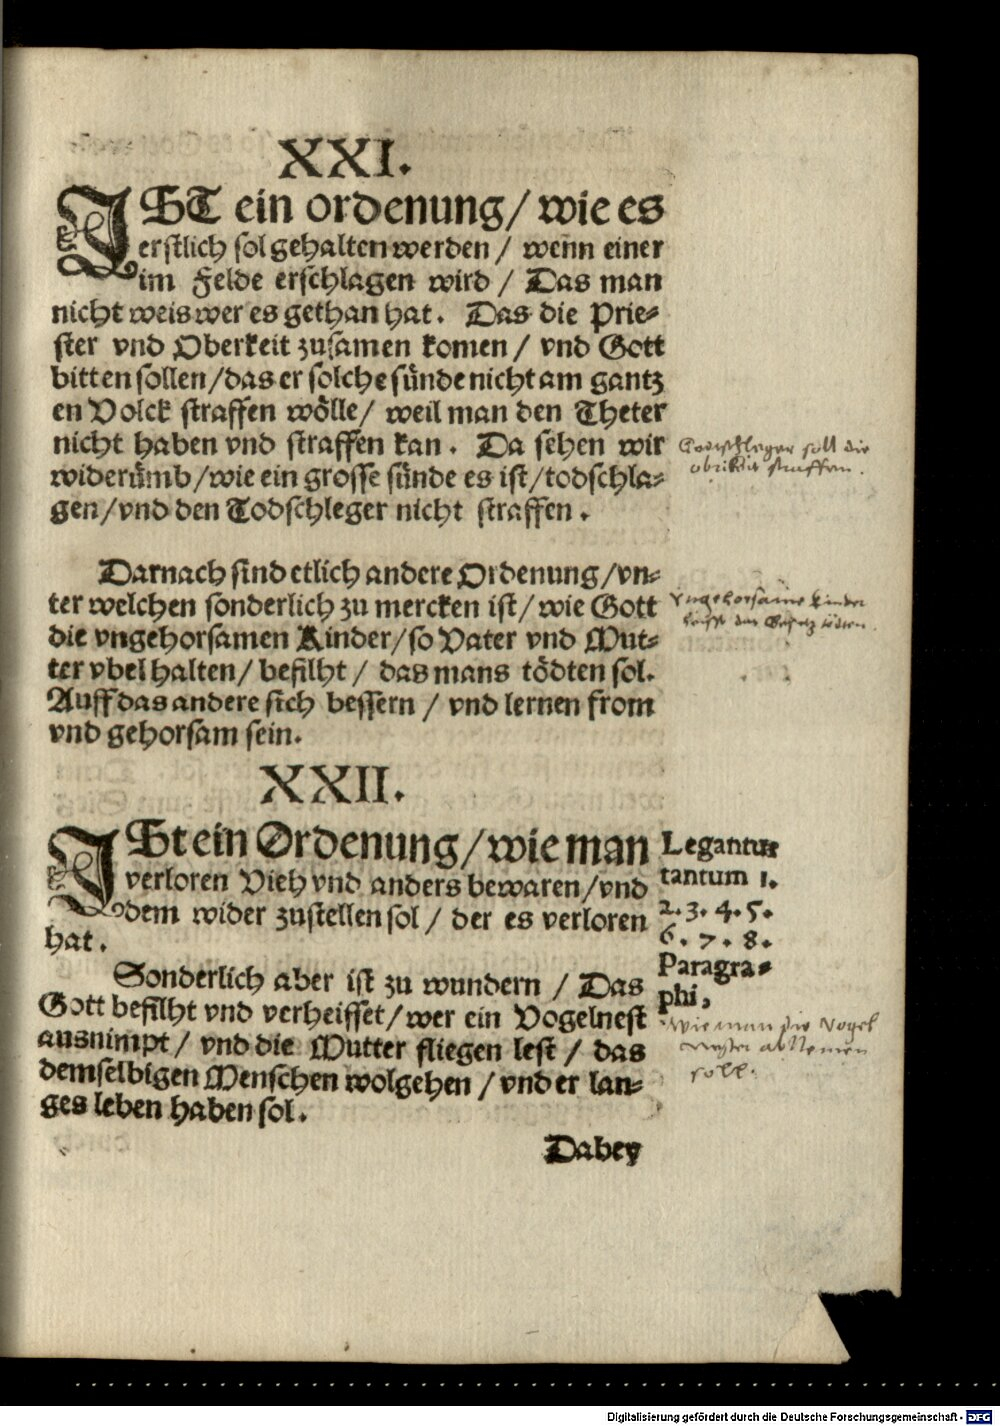 XXI.
IST ein ordenung/ wie es
erstlich sol gehalten werden / wenn einer
im Felde erschlagen wird / Das man
nicht weis wer es gethan hat. Das die Prie-
ster vnd Oberkeit zusamen komen / vnd Gott
bitten sollen/das er solche sünde nicht am gantz
en Volck straffen wölle/ weil man den Theter
nicht haben vnd straffen kan. Da sehen wir
widerümb/wie ein grosse sünde es ist/todschla-
gen/vnd den Todschleger nicht straffen.
Todtschleger soll die
obrikeit straffen.
Darnach sind etlich andere Ordenung/vn-
ter welchen sonderlich zu mercken ist/ wie Gott
die vngehorsamen Kinder/so Vater vnd Mut-
ter vbel halten/ befilht / das mans tödten sol.
Auff das andere sich bessern / vnd lernen from
vnd gehorsam sein.
Vngehorsame kinder
heist das Gesetz tödten.
XXII.
ISt ein Ordenung/wie man
verloren Vieh vnd anders bewaren/vnd
dem wider zustellen sol / der es verloren
hat.
Legantur
tantum 1.
2. 3. 4. 5.
6. 7. 8.
Paragra-
phi,
Sonderlich aber ist zu wundern / Das
Gott befilht vnd verheisset/wer ein Vogelnest
ausnimpt/ vnd die Mutter fliegen lest / das
demselbigen Menschen wolgehen / vnd er lan-
ges leben haben sol.
Wie man die Vogel
nester abnemen
soll.
Dabey
Digitalisierung gefördert durch die Deutsche Forschungsgemeinschaft - DFG